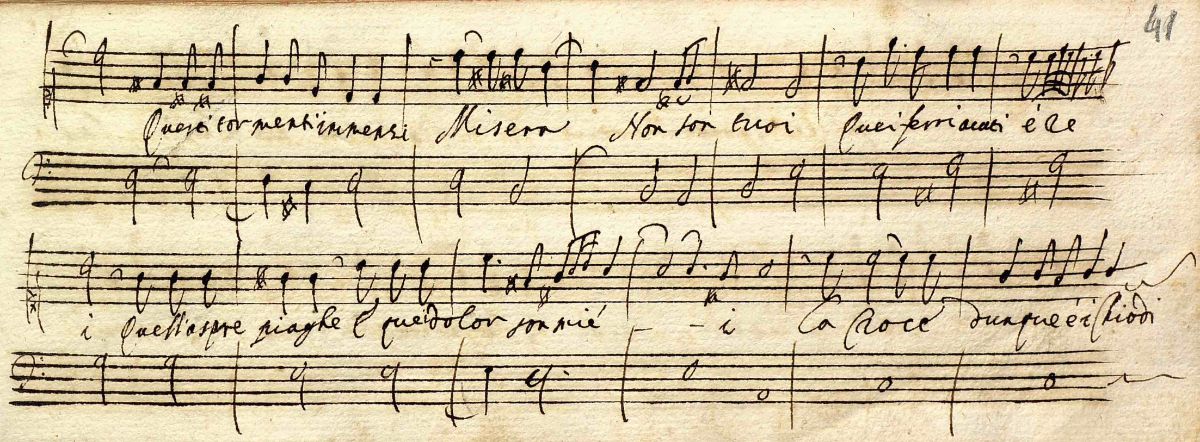 41
Questi tormenti immensi Misera Non son tuoi Quei ferri acuti é re
i Quell'aspre piaghe é quei dolor son mié - - i La Croce dunque é i Chiodi